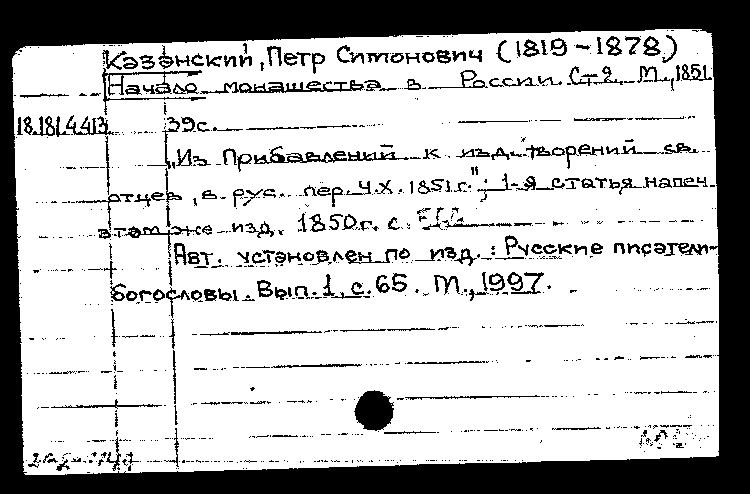 Казанский, Петр Симонович (1819-1878)
Начало монашества в России. Ст. 2. М., 1851.
18.181.4.413 39с.
„Из Прибавлений к изд. творений св.
отцев, в рус. пер. Ч.X. 1851 г."; 1-я статья напеч.
в том же изд. 1850 г. с.
Авт. установлен по изд.: Русские писатели-
богословы. Вып. 1. с. 65. М., 1997.